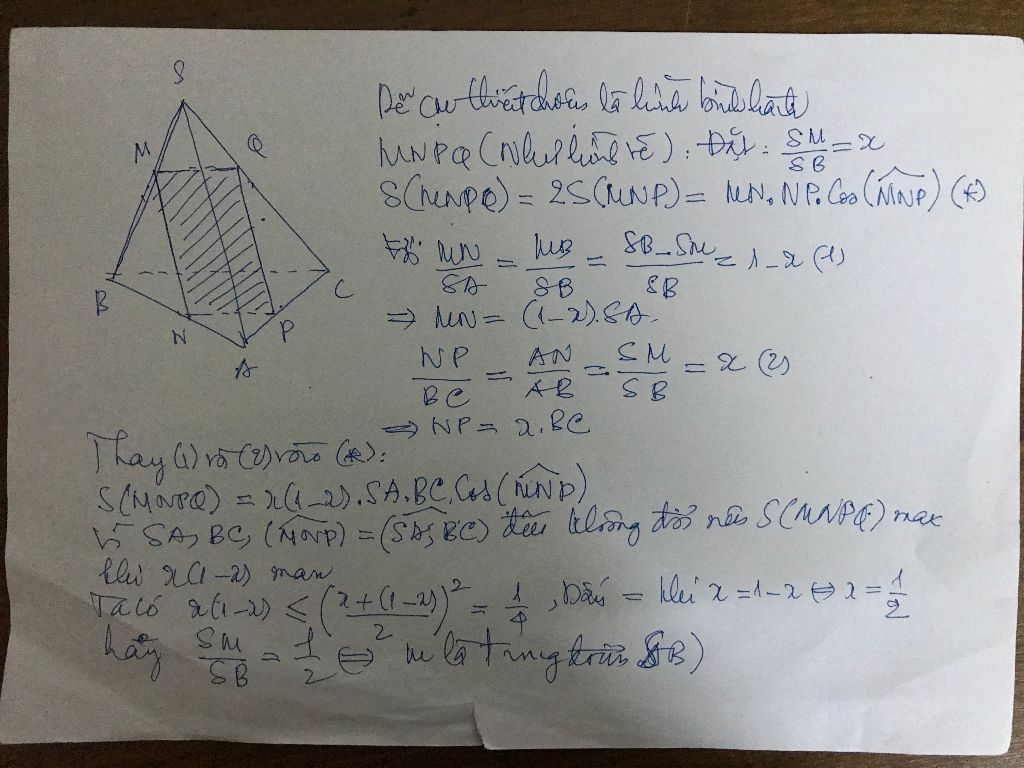 S
M
Q
B
C
N
P
A
Dễ c/m thiết diện là hình bình hành
MNPQ (Như hình vẽ). Đặt: SM/SB = x
S(MNPQ) = 2S(MNP) = MN.NP.Cos(MNP) (*)
MN/SA = MB/SB = SB-SM/SB = 1-x (1)
⇒ MN = (1-x).SA.
NP/BC = AN/AB = SM/SB = x (2)
⇒ NP = x.BC
Thay (1) và (2) vào (*):
S(MNPQ) = x(1-x).SA.BC.Cos(MNP)
Vì SA, BC, (MNP) = (SA; BC) đều không đổi nên S(MNPQ) max
khi x(1-x) max
Ta có x(1-x) ≤ (x+(1-x)/2)² = 1/4, Dấu = khi x = 1-x ⇔ x = 1/2
hay SM/SB = 1/2 ⇔ M là trung điểm SB)